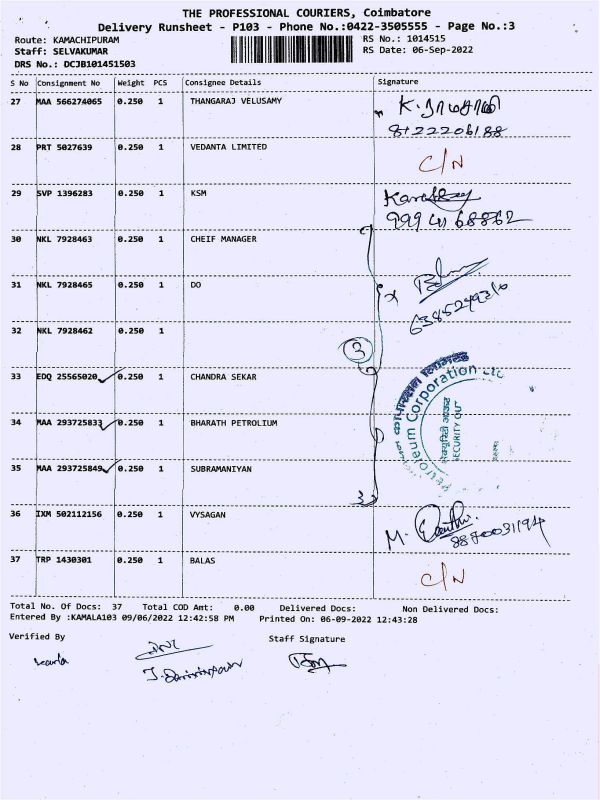 THE PROFESSIONAL COURIERS, Coimbatore
Delivery Runsheet - P103 - Phone No.:0422-3505555 - Page No.:3
Route: KAMACHIPURAM
RS No.: 1014515
Staff: SELVAKUMAR
RS Date: 06-Sep-2022
DRS No.: DCJB101451503
S No Consignment No Weight PCS Consignee Details Signature
27 MAA 566274065 0.250 1 THANGARAJ VELUSAMY
8122206188
28 PRT 5027639 0.250 1 VEDANTA LIMITED C/N
29 SVP 1396283 0.250 1 KSM
30 NKL 7928463 0.250 1 CHEIF MANAGER
31 NKL 7928465 0.250 1 DO
32 NKL 7928462 0.250 1
3
33 EDQ 25565020 0.250 1 CHANDRA SEKAR
34 MAA 293725833 0.250 1 BHARATH PETROLIUM
35 MAA 293725849 0.250 1 SUBRAMANIYAN
Petroleum Corporation Ltd
SECURITY OUT
36 IXM 502112156 0.250 1 VYSAGAN
37 TRP 1430301 0.250 1 BALAS C/N
Total No. Of Docs: 37 Total COD Amt: 0.00 Delivered Docs: Non Delivered Docs:
Entered By :KAMALA103 09/06/2022 12:42:58 PM Printed On: 06-09-2022 12:43:28
Verified By Staff Signature